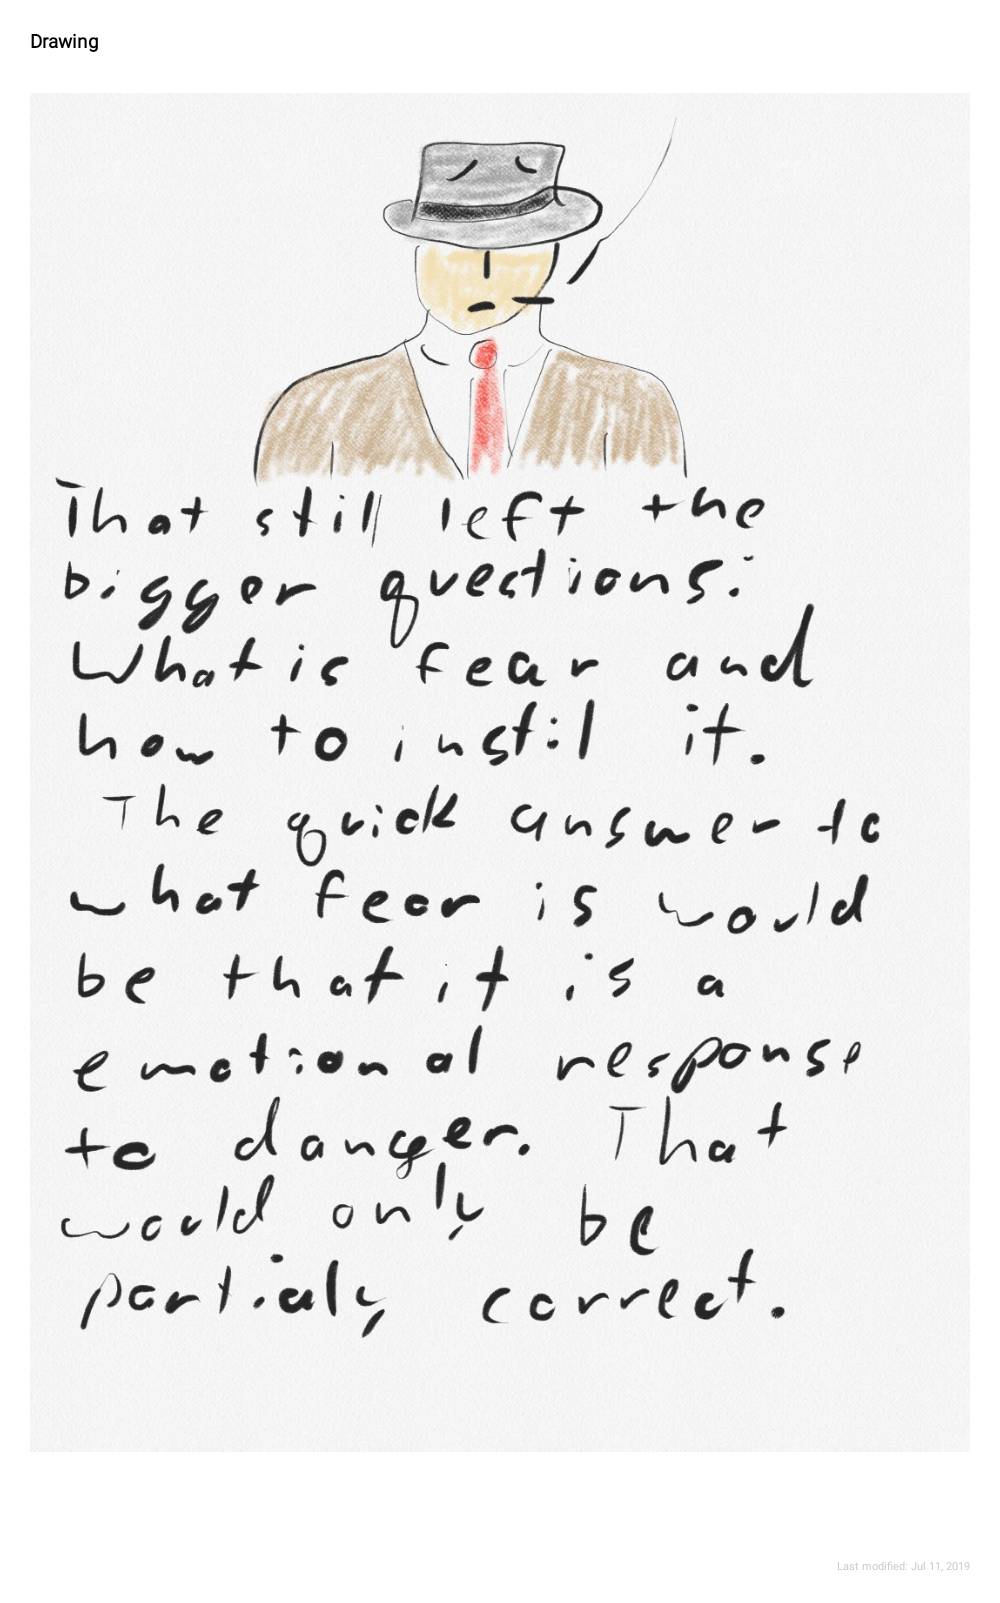 Drawing
That still left the
bigger questions:
What is fear and
how to instil it.
The quick answer to
what fear is would
be that it is a
emotional response
to danger. That
would only be
partialy correct.
Last modified: Jul 11, 2019